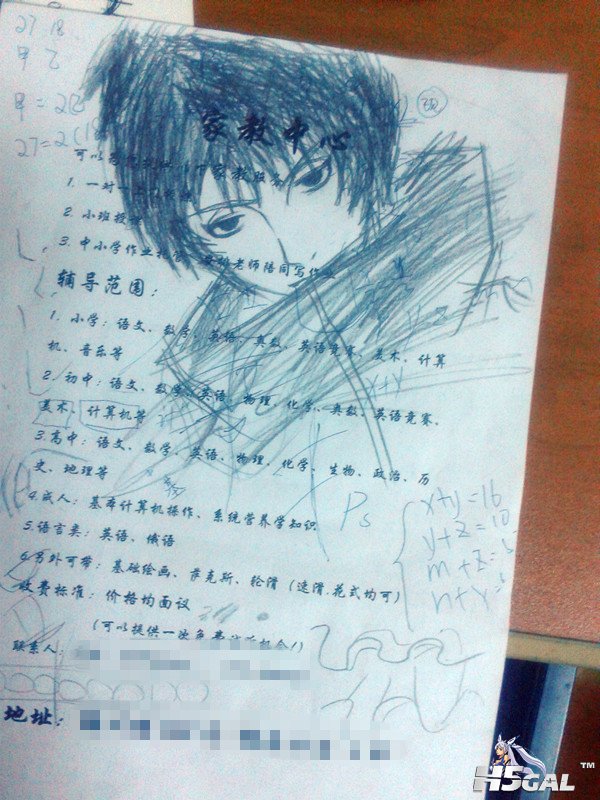 27 18
甲 乙
甲=2(乙
27=2(18
家教中心
1. 一对一
2. 小班授课
3. 中小学作业托管、 老师陪同写作业
辅导范围：
1. 小学：语文、数学、英语、奥数、英语竞赛、美术、计算
机、音乐等
2. 初中：语文、数学、英语、物理、化学、奥数、英语竞赛、
美术、计算机等
3.高中：语文、数学、英语、物理、化学、生物、政治、历
史、地理等
x+y
Ps
x+y=16
y+z=10
m+z=
n+y=
4.成人：基本计算机操作、系统营养学知识
5.语言类：英语、俄语
6.另外可带：基础绘画、萨克斯、轮滑（速滑.花式均可）
收费标准：价格均面议
（可以提供一次免费 机会！）
联系人：
地址：
H5GAL™